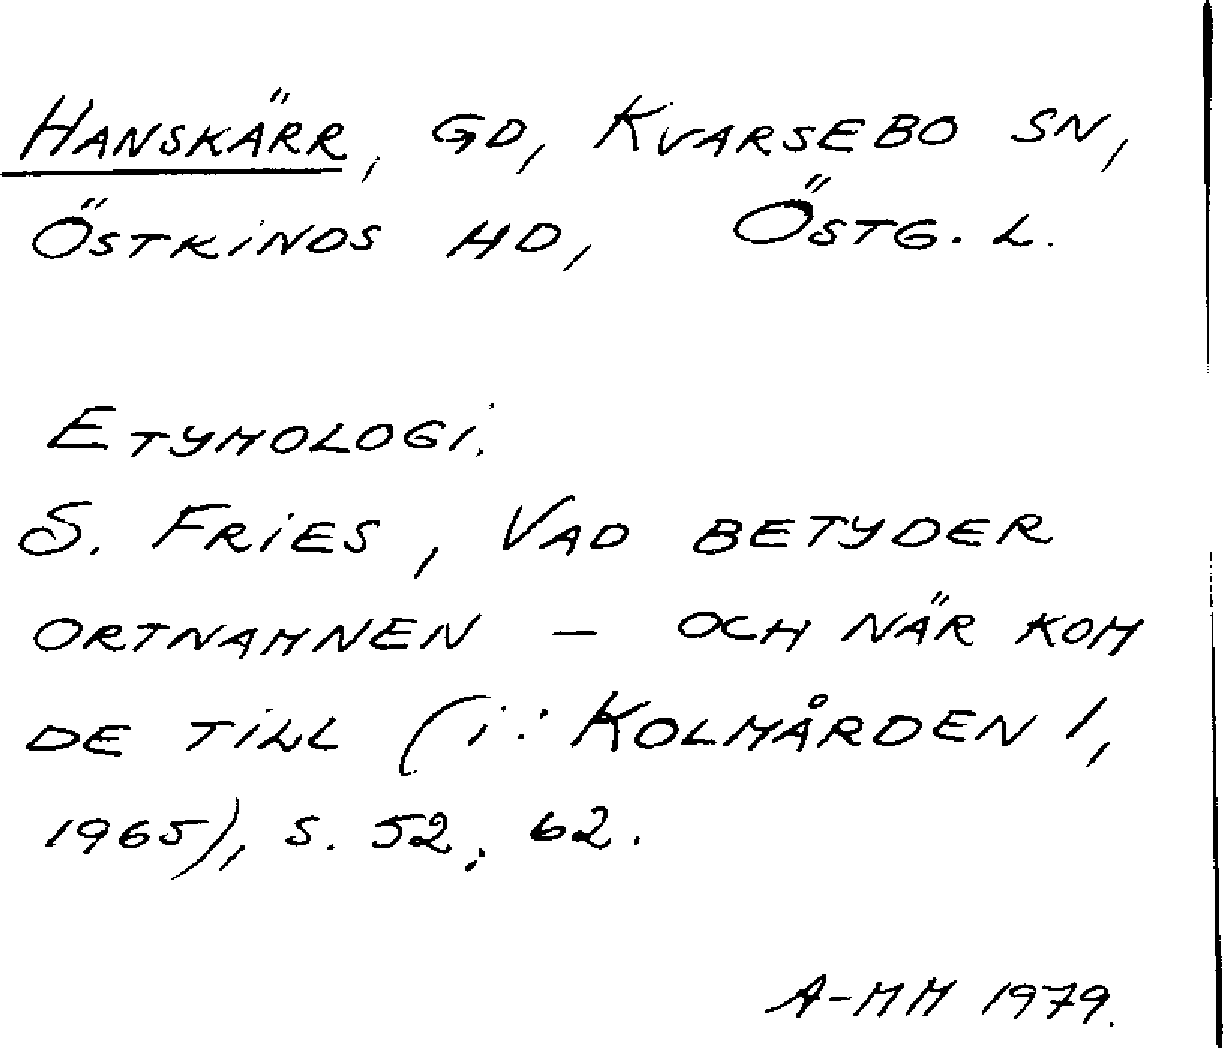 HANSKÄRR, GD, KVARSEBO SN,
ÖSTKINDS HD, ÖSTG. L.
ETYMOLOGI.
S. FRIES, VAD BETYDER
ORTNAMNEN – OCH NÄR KOM
DE TILL (i: KOLMÅRDEN 1,
1965), S. 52, 62.
A-MM 1979.